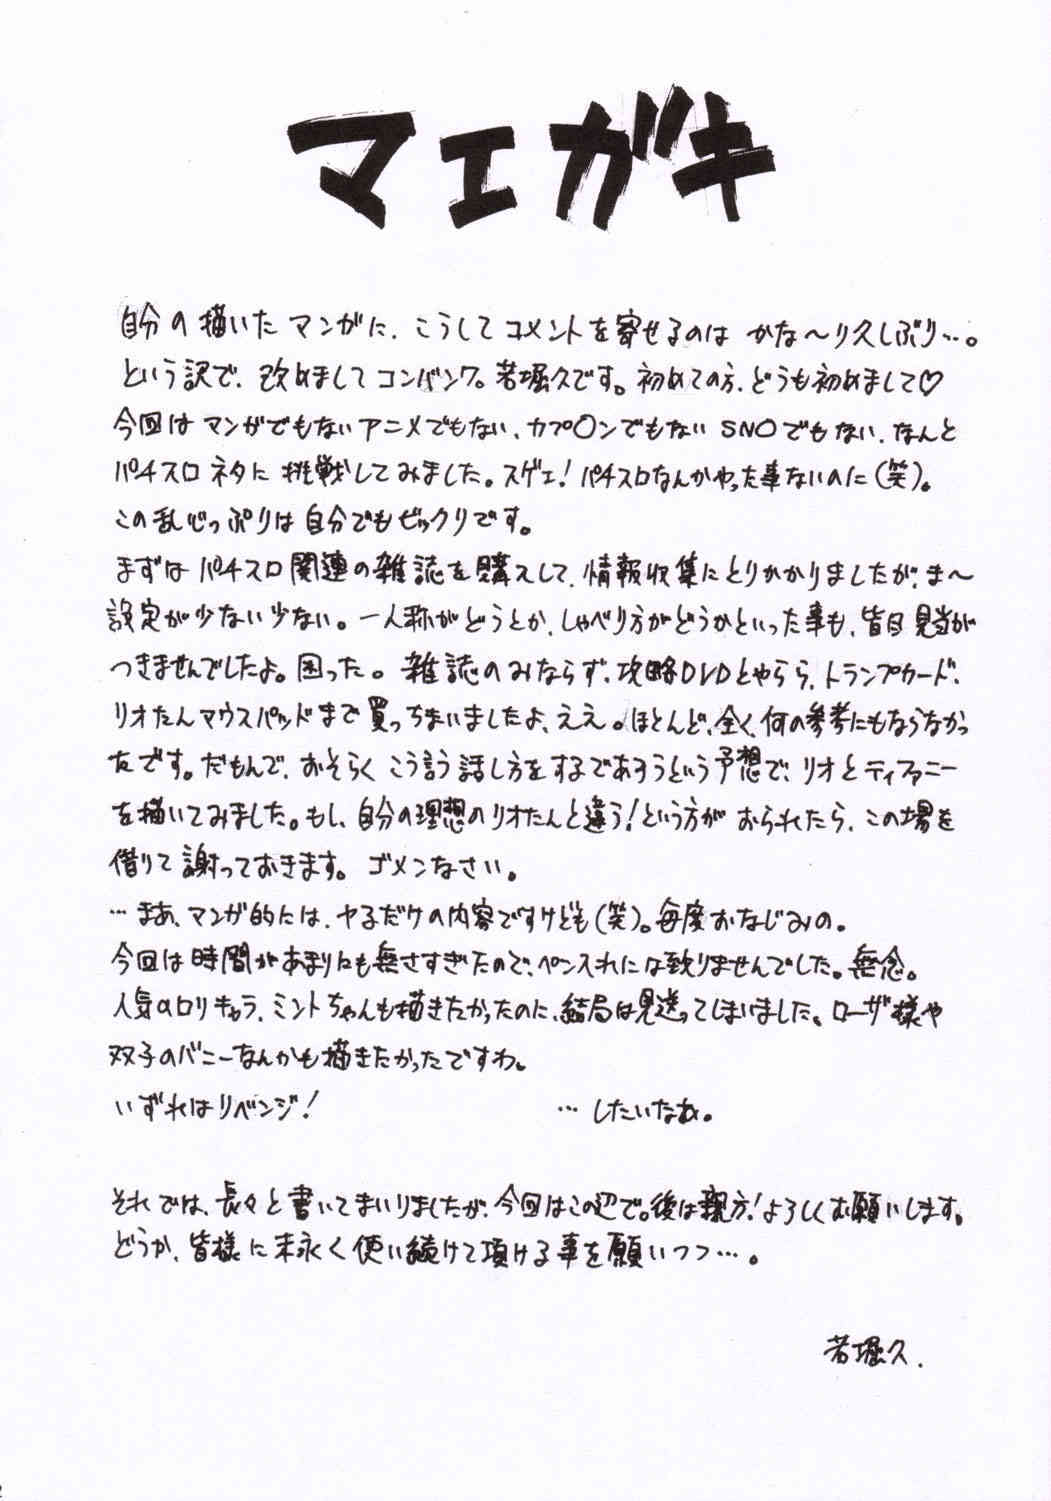 マエガキ
自分の描いたマンガに、こうしてコメントを寄せるのは かな〜り久しぶり…。
という訳で、改めましてコンバンワ。若堀久です。初めての方、どうも初めまして♡
今回は マンガでもないアニメでもない、カプ〇ンでもない SNOでもない、なんと
パチスロ ネタに 挑戦してみました。スゲェ! パチスロなんかやった事ないのに(笑)。
この乱心っぷりは自分でもビックリです。
まずは パチスロ関連の雑誌を購入して、情報収集にとりかかりましたが、ま〜
設定が少ない少ない。一人称がどうとか、しゃべり方がどうかといった事も、皆目見当が
つきませんでしたよ。困った。雑誌のみならず、攻略DVDとやらら、トランプカード、
リオたんマウスパッドまで買っちまいましたよ、ええ。ほとんど、全く、何の参考にもならなかっ
たです。だもんで、おそらくこう言う話し方をするであろうという予想で、リオとティファニー
を描いてみました。もし、自分の理想のリオたんと違う!という方が おられたら、この場を
借りて謝っておきます。ゴメンなさい。
…まあ、マンガ的には、ヤるだけの内容ですけども(笑)。毎度おなじみの。
今回は時間があまりにも無さすぎたので、ペン入れには致りませんでした。無念。
人気のロリキャラ、ミントちゃんも描きたかったのに、結局は見送ってしまいました。ローザ様や
双子のバニーなんかも描きたかったですわ。
いずれはリベンジ! …したいなぁ。
それでは、長々と書いてまいりましたが、今回はこの辺で。後は親方!よろしくお願いします。
どうか、皆様に末永く使い続けて頂ける事を願いつつ…。
若堀久.
2